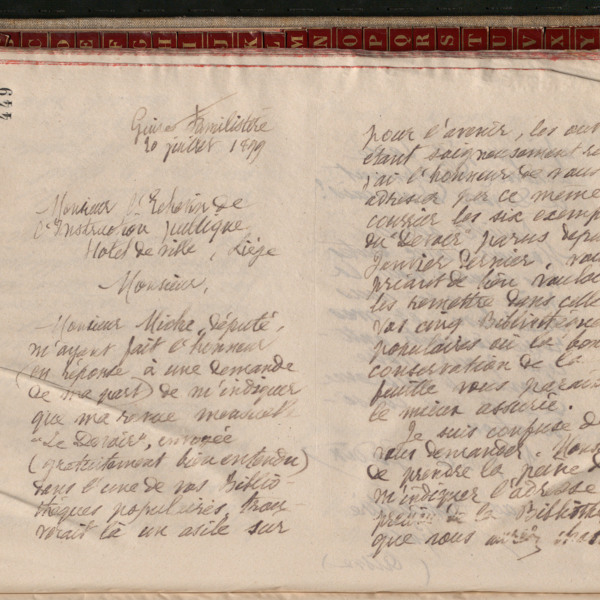 C D E F G H I J K L M N O P Q R S T U V X Y
449
Guise Familistère
20 juillet 1879
Monsieur l'Echevin de
l'Instruction publique
Hotel de ville, Liège
Monsieur,
Monsieur député,
m'ayant fait l'honneur
(en réponse à une demande
de ma part) de m'indiquer
que ma revue mensuelle
"Le Devoir", envoyée
(gratuitement bien entendu)
dans l'une de vos Biblio-
thèques populaires, trou-
verait là un asile sur
pour l'avenir, les
étant soigneusement
j'ai l'honneur de vous
adresser par ce même
courrier les six
du "Devoir" parus
Janvier dernier, vous
priant de bien
les remettre dans celle
vos cinq Bibliothèques
populaires où la bonne
conservation de la
feuille vous
le mieux assurée.
Je suis confuse de
vous demander
de prendre la peine
m'indiquer l'adresse
de la
que vous